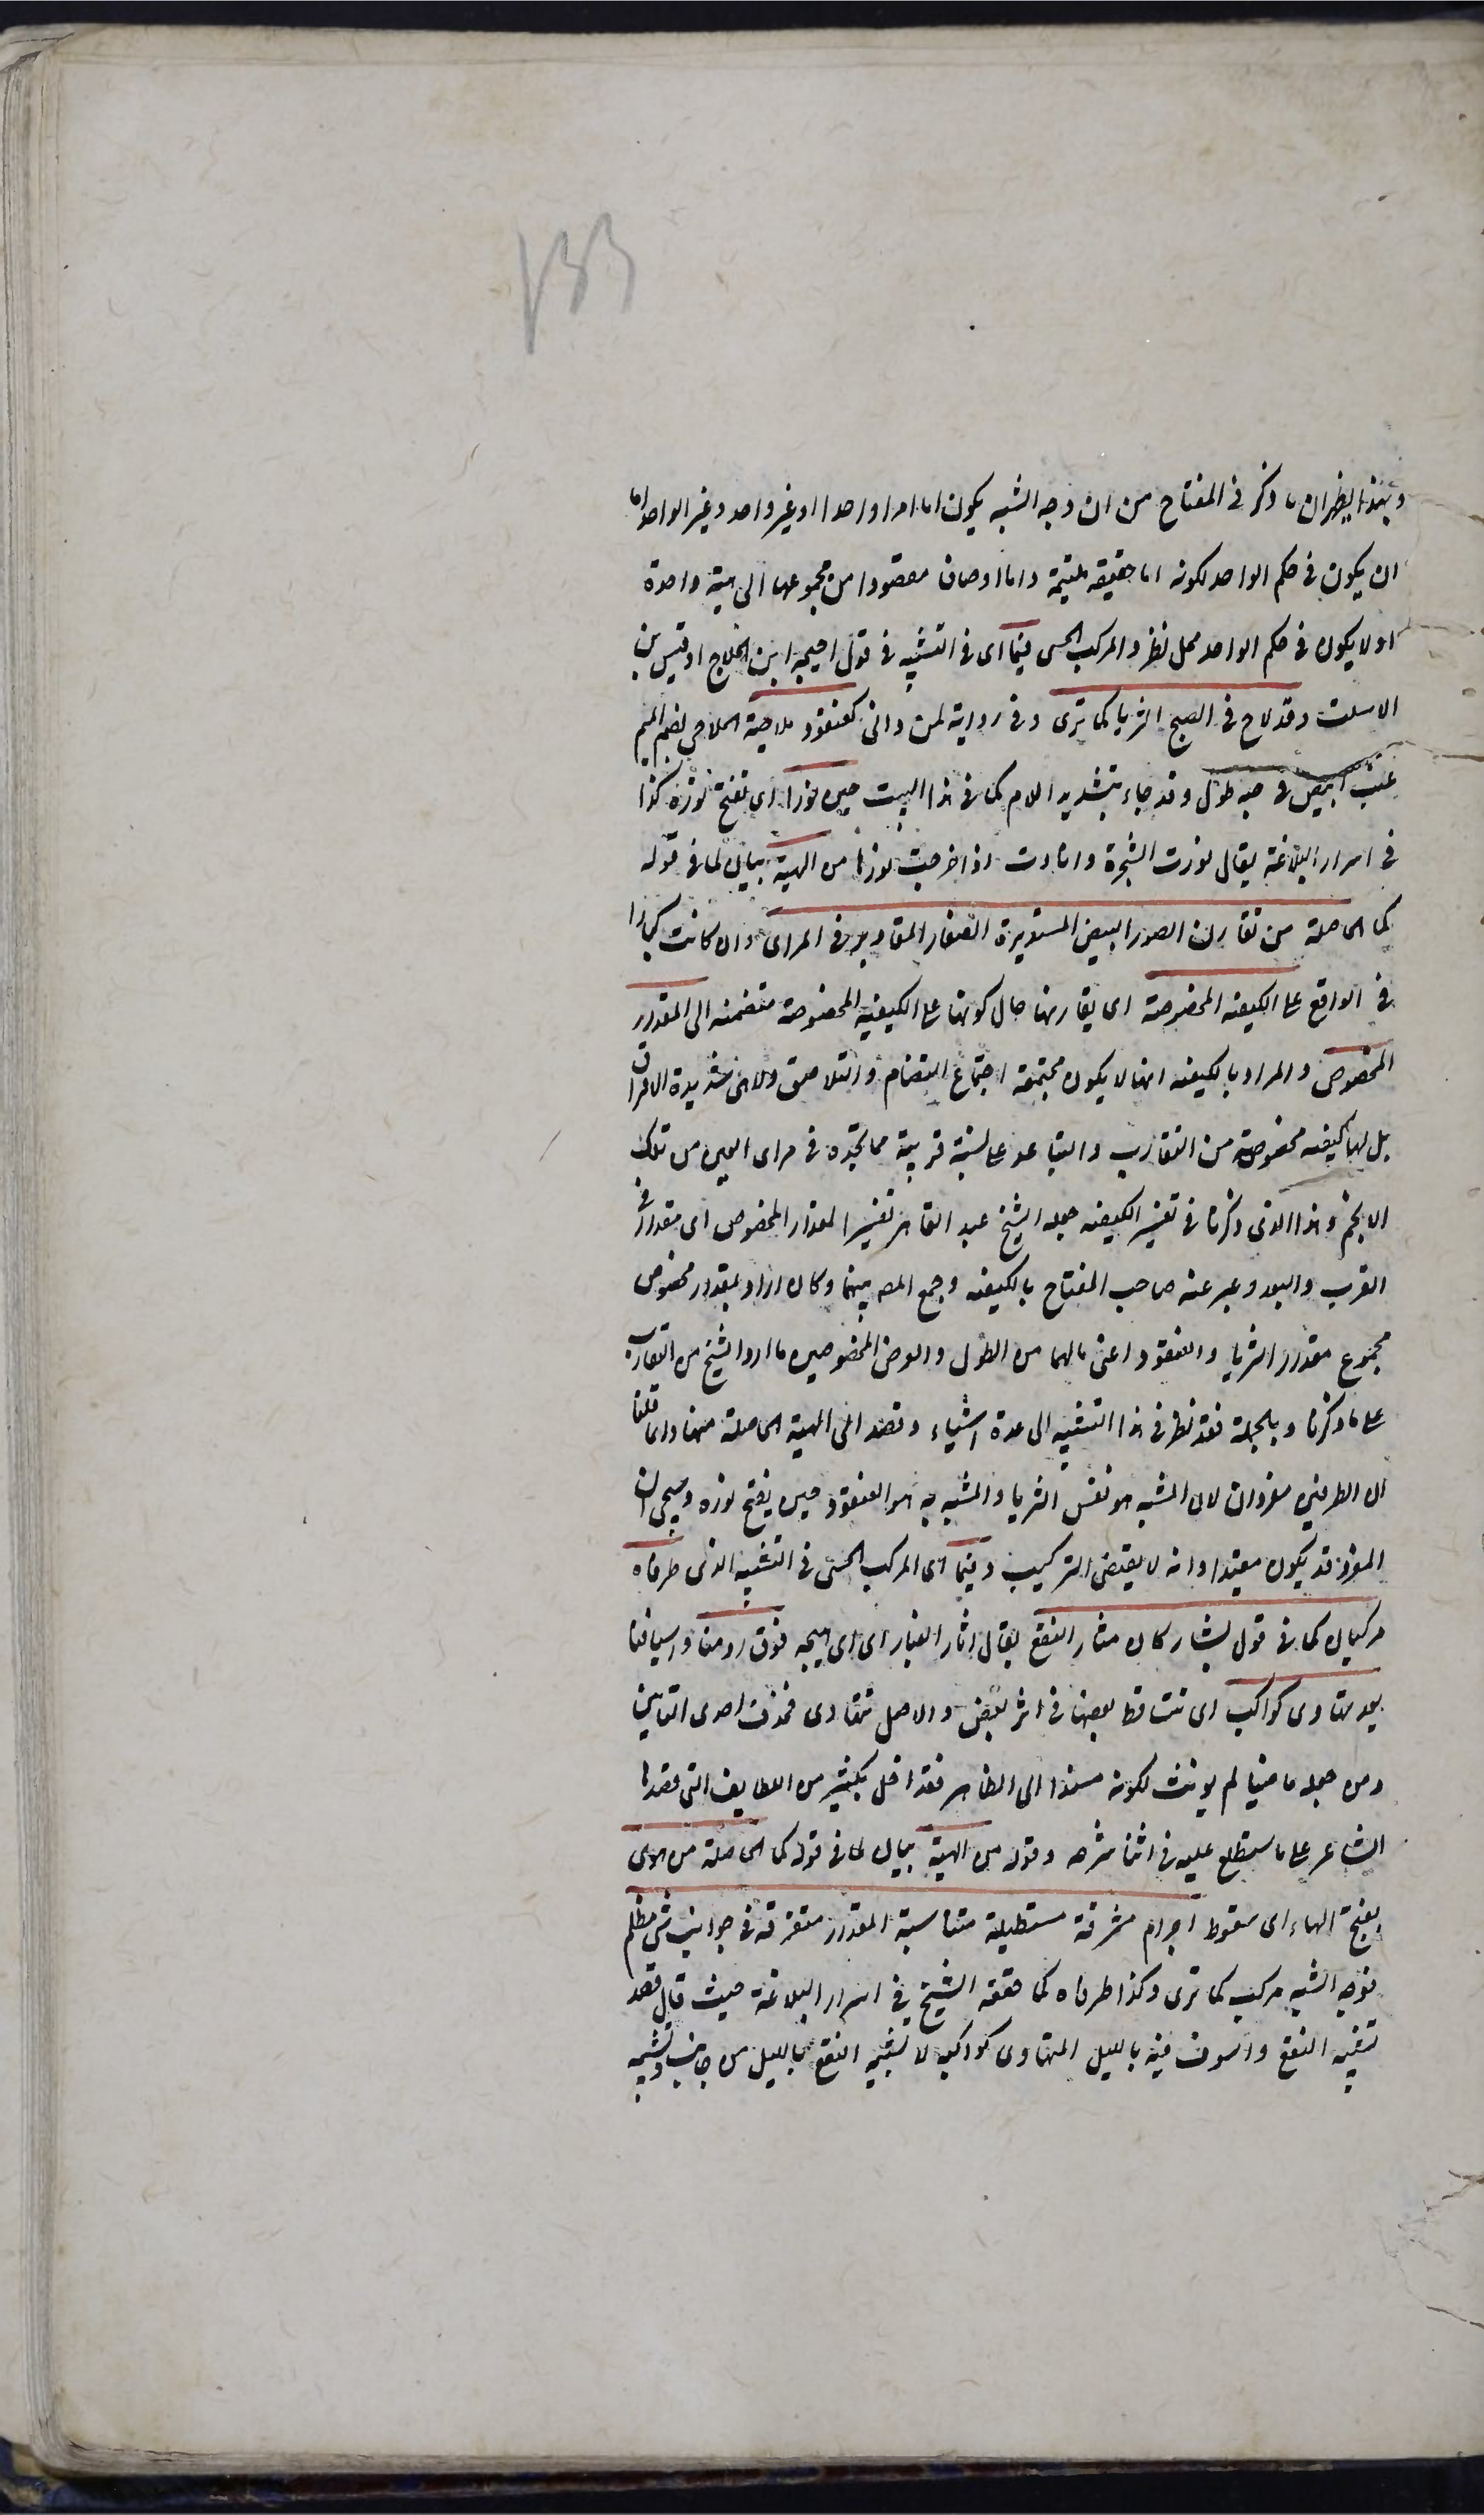 ١٣٣
وبهذا يظهر ان ما ذكر في المفتاح من ان وجه الشبه يكون اما امرا واحدا او غير واحد وغير الواحد اما
ان يكون في حكم الواحد لكونه اما حقيقة ملتئمة واما اوصاف مقصودا من مجموعها الى هيئة واحدة
او لا يكون في حكم الواحد محل نظر والمركب الحسي فيما اى في التشبيه في قول احيحة ابن الجلاح او قيس بن
الاسلت وقد لاح في الصبح الثريا كما ترى وفي رواية لمن رائى كعنقود ملاحية الملاحي بضم الميم
عنب ابيض في حبه طول وقد جاء بتشديد اللام كما في هذا البيت حين نورا اى تفتح نوره كذا
في اسرار البلاغة يقال نورت الشجرة وانارت اذا اخرجت نورها من الهيئة بيان لما في قوله
كما الحاصلة من تقارن الصور البيض المستديرة الصغار المقادير في المراى وان كانت كبارا
في الواقع على الكيفية المخصوصة اى تقارنها حال كونها على الكيفية المخصوصة منضمة الى المقدار
المخصوص والمراد بالكيفية انها لا يكون مجتمعة اجتماع التضام والتلاصق ولا هى شديدة الافتراق
بل لها كيفية مخصوصة من التقارب والتباعد على نسبة قريبة مما تجده في مراى العين من تلك
الانجم وهذا الذى ذكرنا في تفسير الكيفية جعله الشيخ عبد القاهر تفسيرا لمقدار المخصوص اى مقدار في
القرب والبعد وعبر عنه صاحب المفتاح بالكيفية وجمع المص بينهما وكان اراد بمقدار مخصوص
مجموع مقدار الثريا والعنقود اعنى مالهما من الطول والعرض المخصوصين ما اراد الشيخ من التقارب
على ما ذكرنا وبالجملة فقد نظر في هذا التشبيه الى عدة اشياء وقصد الى الهيئة الحاصلة منها وانما قلنا
ان الطرفين مفردان لان المشبه هو نفس الثريا والمشبه به هو العنقود حين يفتح نوره وسيجى ان
المفرد قد يكون مقيدا وانه لا يقتضى التركيب وفيما اى المركب الحسى في التشبيه الذى طرفاه
مركبان كما في قول بشار كان مثار النقع يقال اثار الغبار اى هيجه فوق رؤسنا واسيافنا
ليل تهاوى كواكبه اى تتساقط بعضها في اثر بعض والاصل تتهاوى فحذفت احدى التائين
ومن جعله ماضيا لم يونث لكونه مسندا الى الظاهر فقد اخل بكثير من اللطايف التى قصدها
الشاعر على ما سيطلع عليه في اثنا شرحه وقوله من الهيئة بيان لما في قوله كما الحاصلة من هوى
بفتح الهاء اى سقوط اجرام مشرقة مستطيلة متناسبة المقدار متفرقة في جوانب شى مظلم
فوجه الشبه مركب كما ترى وكذا طرفاه كما حققه الشيخ في اسرار البلاغة حيث قال قصد
تشبيه النقع والسيوف فيه بالليل المتهاوى كواكبه لا تشبيه النقع بالليل من جانب وتشبيه